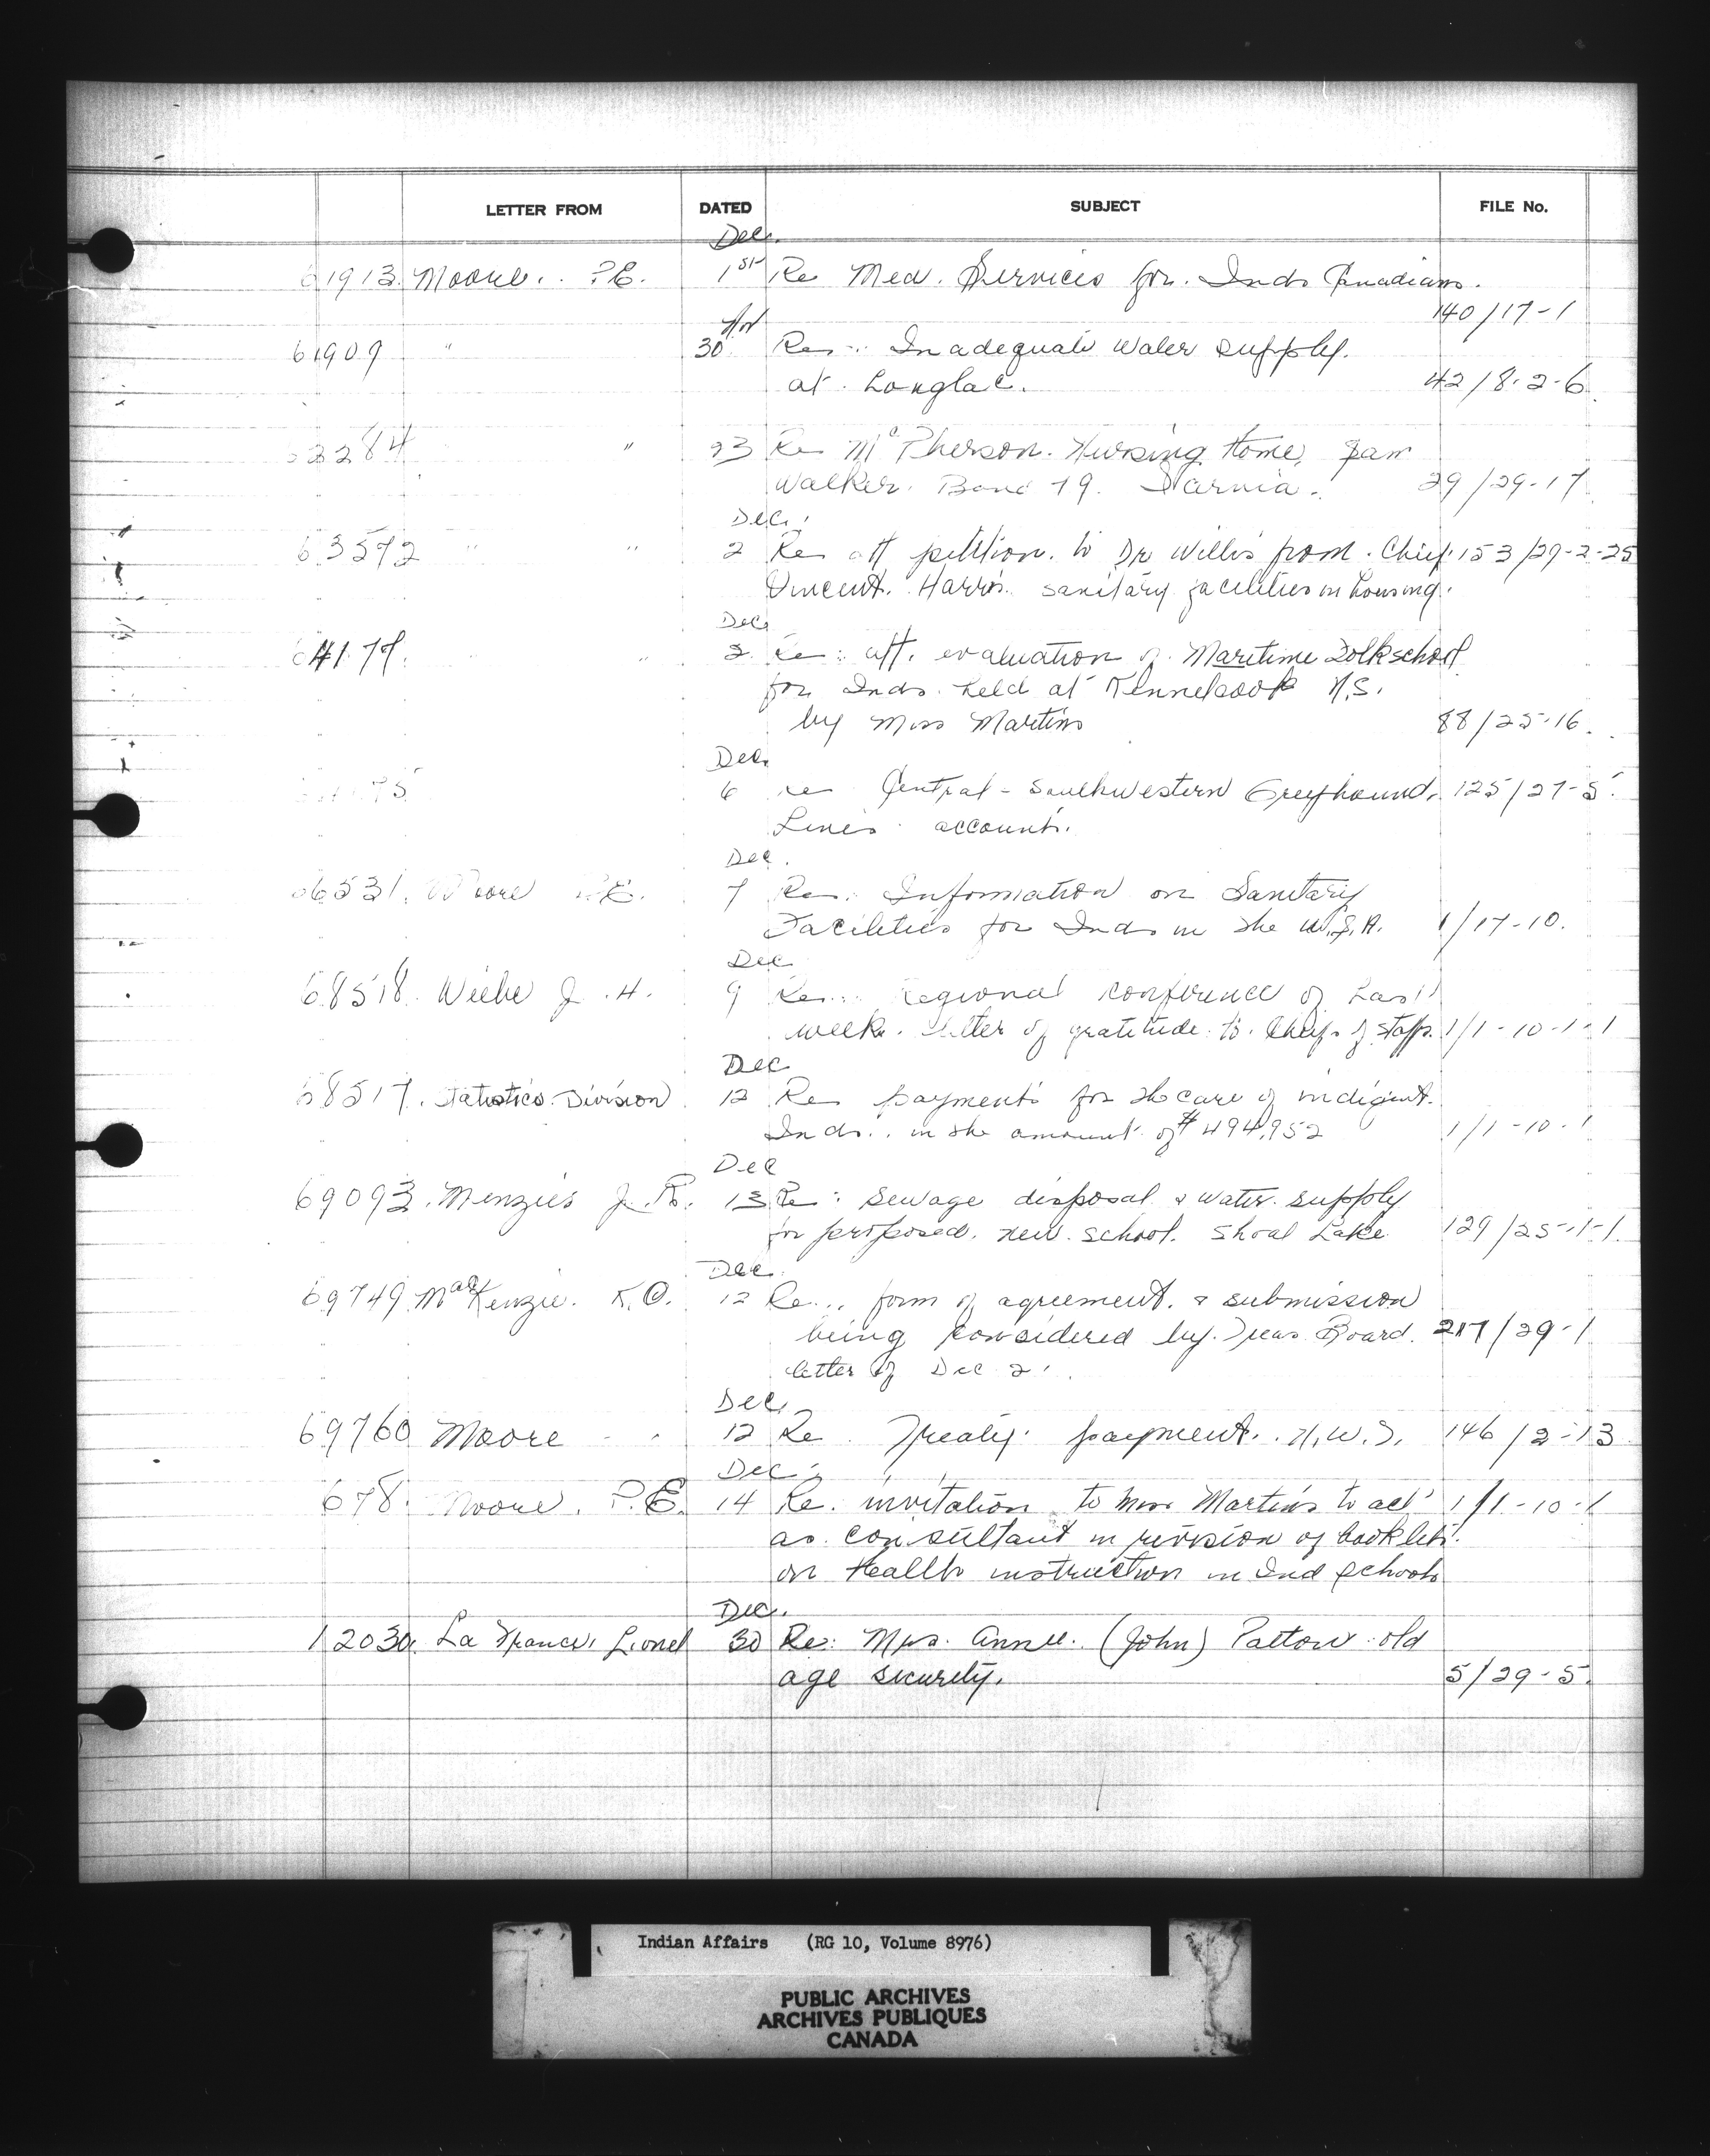 LETTER FROM DATED SUBJECT FILE No.
Dec.
61913. Moore. P.E. 1st Re Med. Services for. Inds Canadians.
140/17-1
Nov
61909 " 30. Re: Inadequate Water supply.
at. Longlac. 42/8-2-6.
" 23 Re McPherson. Nursing Home, Sam
Walker. Band 79. Sarnia. 29/29-17
Dec.
63572 " " 2 Re att petition. to Dr Willis from. Chief 153/29-2-25
Vincent. Harris. sanitary facilities in housing.
Dec.
" 2 Re: att. evaluation of Maritime Folkschool
for Inds. held at Kennetcook N.S.
by Miss Martins 88/25-16.
Dec.
6 re Central - Southwestern Greyhound. 125/27-5.
Lines accounts.
Dec.
66531. Moore P.E. 7 Re: Information on Sanitary
Facilities for Inds in the U.S.A. 1/17-10.
Dec
68518. Wiebe J. H. 9 Re: Regional conference of Last
week. letter of gratitude. to. Chief of staff. 1/1-10-1-1
Dec
68517. Statistics Division 12 Re payments for the care of indigent.
Inds.. in the amount of $494,952 1/1-10-1
Dec
69093. Menzies J. R. 13 Re: Sewage disposal & water supply
for proposed. new. school. Shoal Lake 129/25-1-1.
Dec.
69749 MacKenzie. K.O. 12 Re.. form of agreement. & submission
being considered by. Treas. Board. 217/29-1
letter of Dec 2.
Dec.
69760 Moore 12 Re Treaty payment. N.W.T. 146/2-13
Dec.
678. Moore. P.E. 14 Re. invitation to Miss Martins to act 1/1-10-1
as consultant in revision of booklets.
on Health instruction in Ind schools
Dec.
12030. La France, Lionel 30 Re: Mrs. Annie. (John) Patton old
age security. 5/29-5.
Indian Affairs (RG 10, Volume 8976)
PUBLIC ARCHIVES
ARCHIVES PUBLIQUES
CANADA